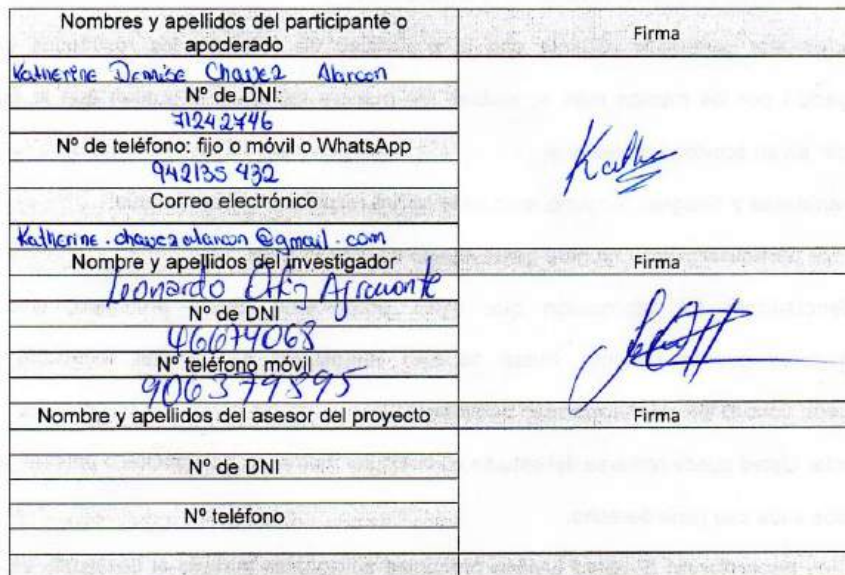 Nombres y apellidos del participante o
apoderado
Firma
Katherine Denise Chavez Alarcon
Nº de DNI:
71242746
Nº de teléfono: fijo o móvil o WhatsApp
942135 432
Correo electrónico
Katherine.chavezalarcon@gmail.com
Nombre y apellidos del investigador
Firma
Leonardo
Nº de DNI
46674068
Nº teléfono móvil
906379895
Nombre y apellidos del asesor del proyecto
Firma
Nº de DNI
Nº teléfono